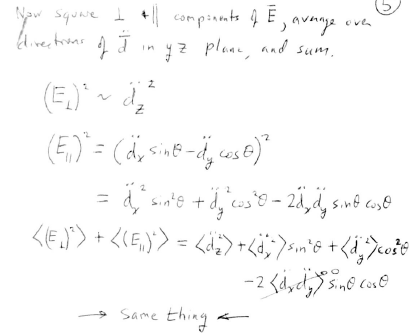 ⑤
Now square ⊥ + || components of E̅, average over
directions of d̈ in yz plane, and sum.
(E⊥)² ~ d̈z²
(E||)² = (d̈x sinθ - d̈y cosθ)²
= d̈x² sin²θ + d̈y² cos²θ - 2d̈x d̈y sinθ cosθ
<(E⊥)²> + <(E||)²> = <d̈z²> + <d̈x²> sin²θ + <d̈y²> cos²θ
- 2 <d̈x d̈y>⁰ sinθ cosθ
→ Same thing ←